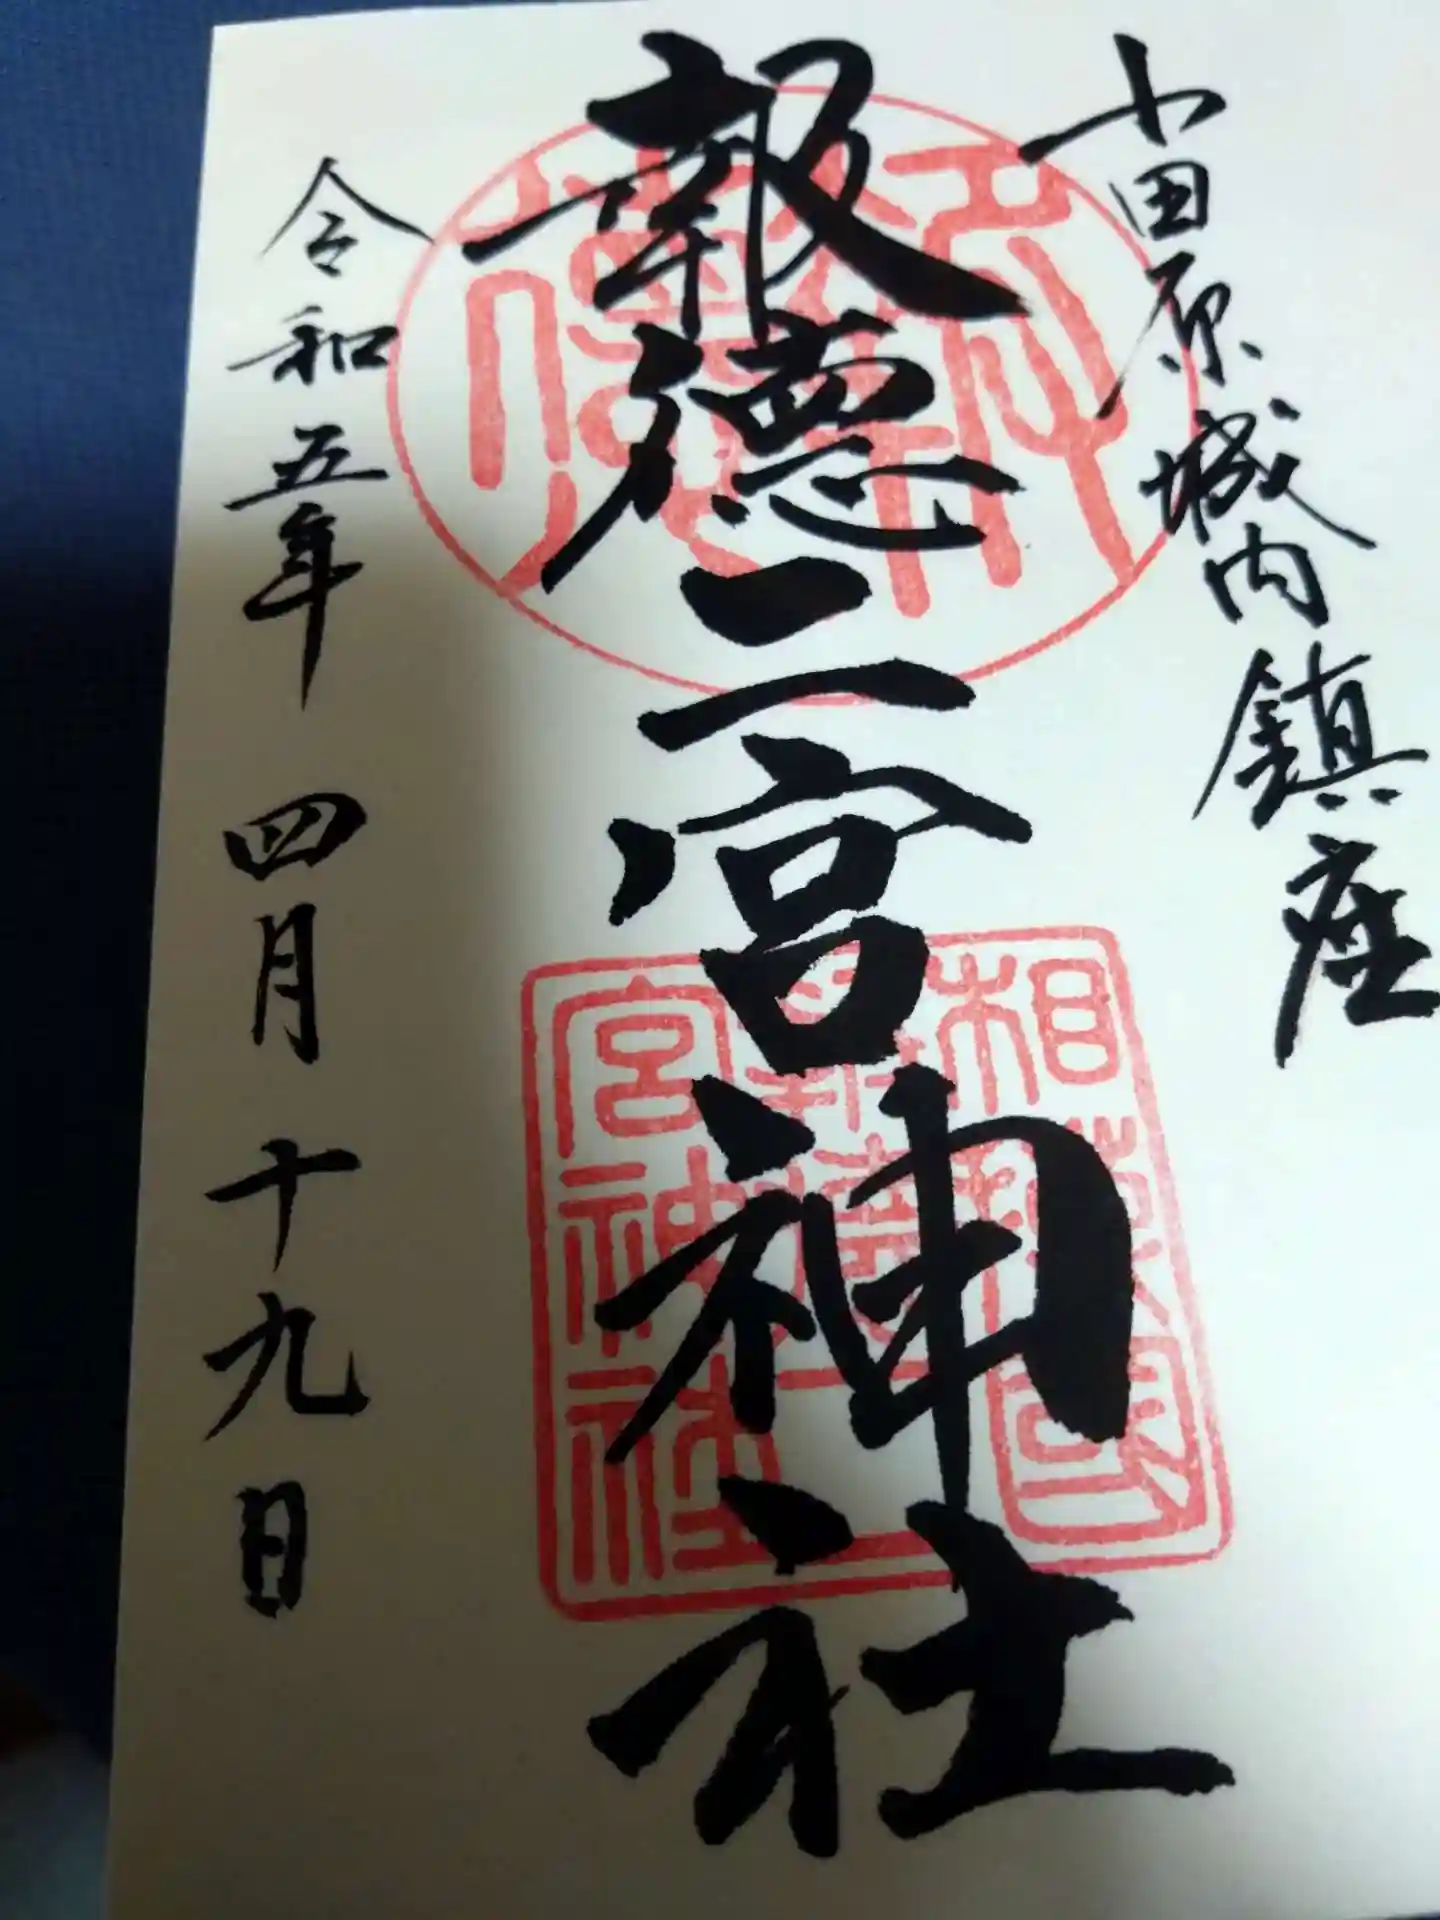 小田原城内鎮座
報徳二宮神社
令和五年 四月十九日
相模國
報徳二
宮神社